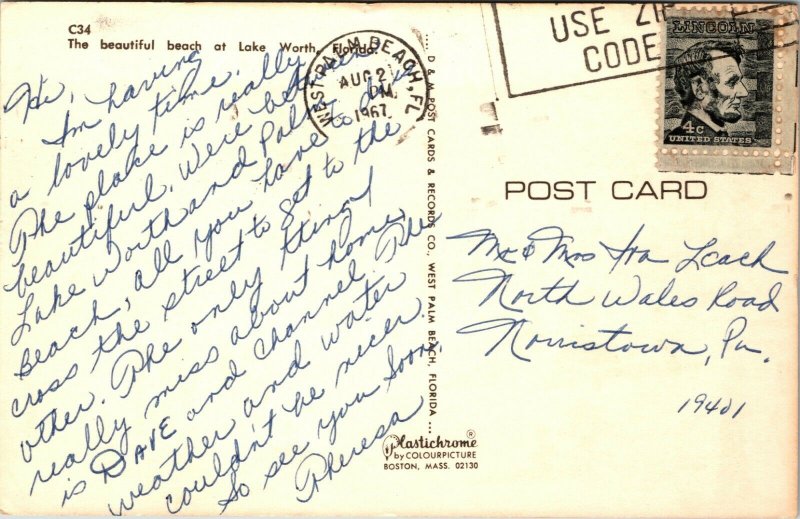 C34
The beautiful beach at Lake Worth, Florida.
Hi,
I'm having
a lovely time.
The place is really
beautiful. Were between
Lake Worth and Palm
Beach, all you have to do is
cross the street to get to the
other. The only thing I
really miss about home
is DAVE and channel The
weather and water
couldn't be nicer.
So see you soon
Theresa
D & M POST CARDS & RECORDS CO., WEST PALM BEACH, FLORIDA
WEST PALM BEACH, FL
AUG 2
PM
1967
USE ZIP
CODE
LINCOLN
4c
UNITED STATES
POST CARD
Mr & Mrs Ira Leach
North Wales Road
Norristown, Pa.
19401
Plastichrome®
by COLOURPICTURE
BOSTON, MASS. 02130